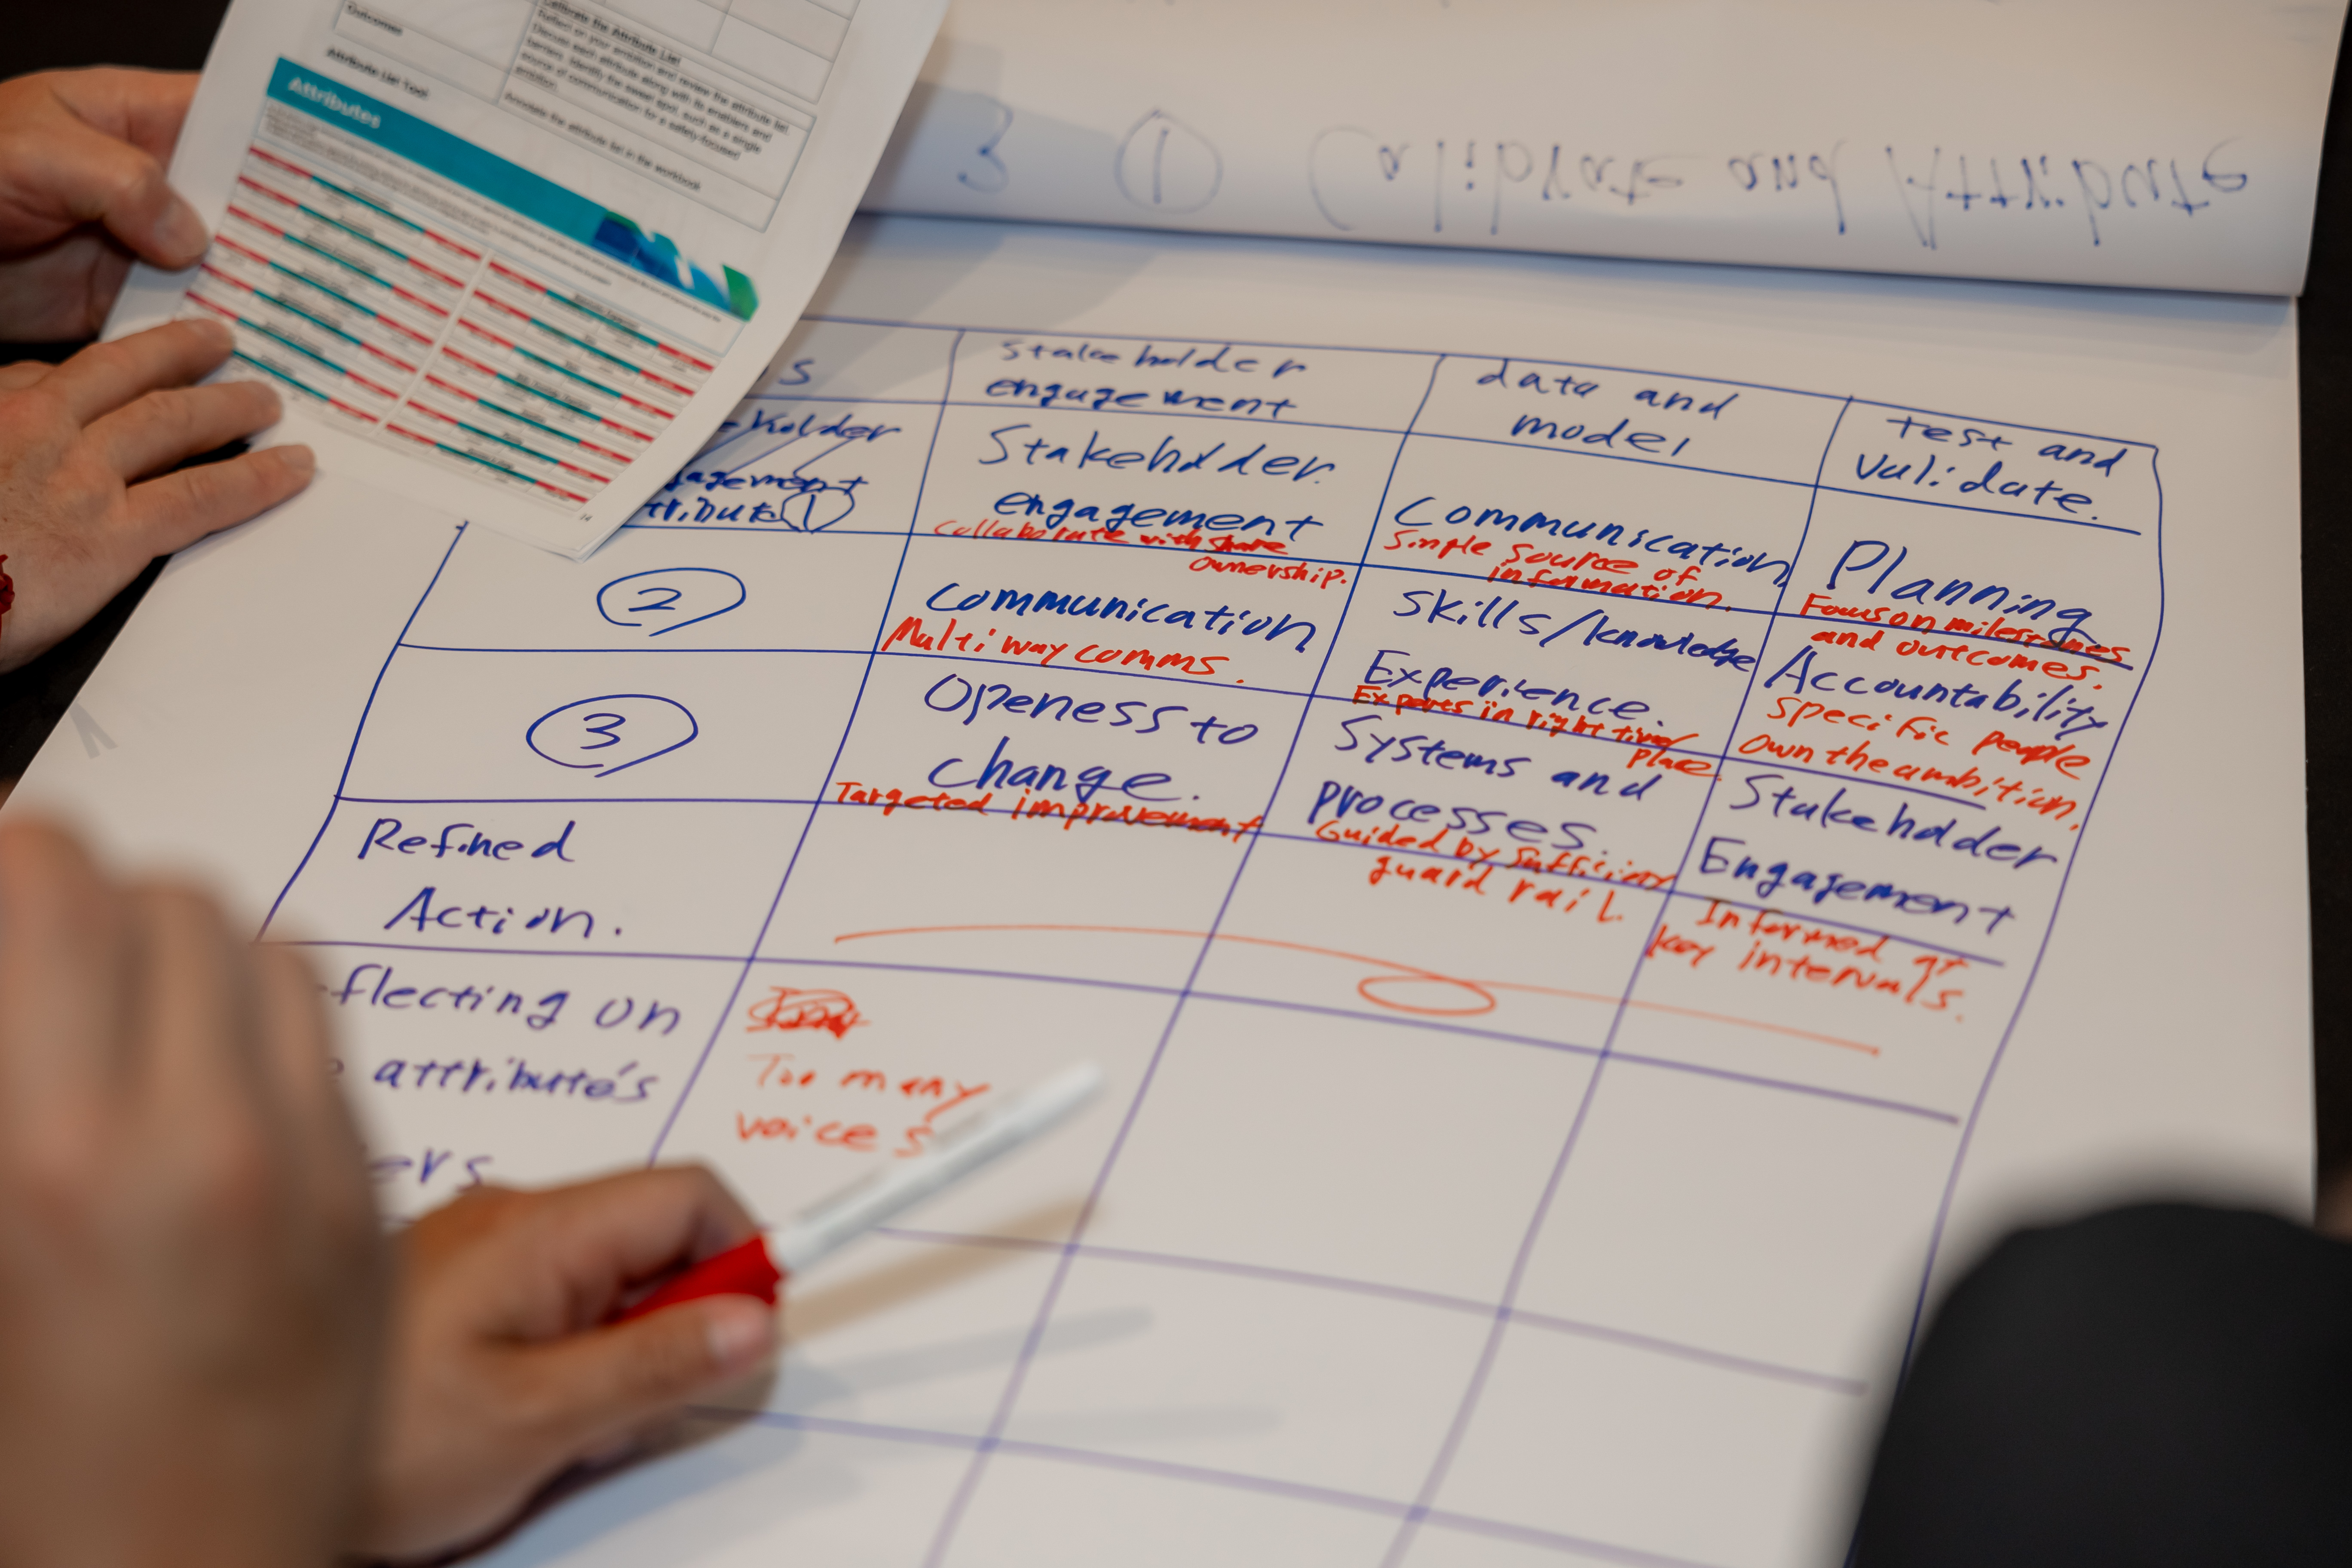 Outcomes
Attribute List Tool
Calibrate the Attribute List
Reflect on your ambition and review the attribute list.
Discuss each attribute along with its enablers and
barriers. Identify the sweet spot, such as a single
source of communication for a safety-focused
ambition.
Annotate the attribute list in the workbook
Attributes
14
3 ① Calibrate and Attribute
s
Stakeholder
engagement
data and
model
test and
validate.
eholder
gagement
ttribute ①
Stakeholder
engagement
Collaborate with share
ownership.
Communication
Single source of
information.
Planning
Focus on milestones
and outcomes.
②
Communication
Multi way comms.
Skills/knowledge
Experience.
Experts in right time/
place.
Accountability
Specific people
own the ambition.
③
Openess to
change.
Targeted improvement
Systems and
processes.
Guided by sufficient
guard rail.
Stakeholder
Engagement
Informed at
key intervals.
Refined
Action.
flecting on
e attribute's
ers
Too many
voices